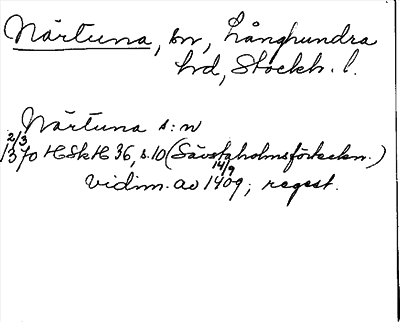 Närtuna, sn, Långhundra
hd, Stockh. l.
Närtuna s:n
2/3 1370 HSkH 36, s. 10 (Sävstaholmsförteckn.)
vidim. av 14/9 1409; regest.